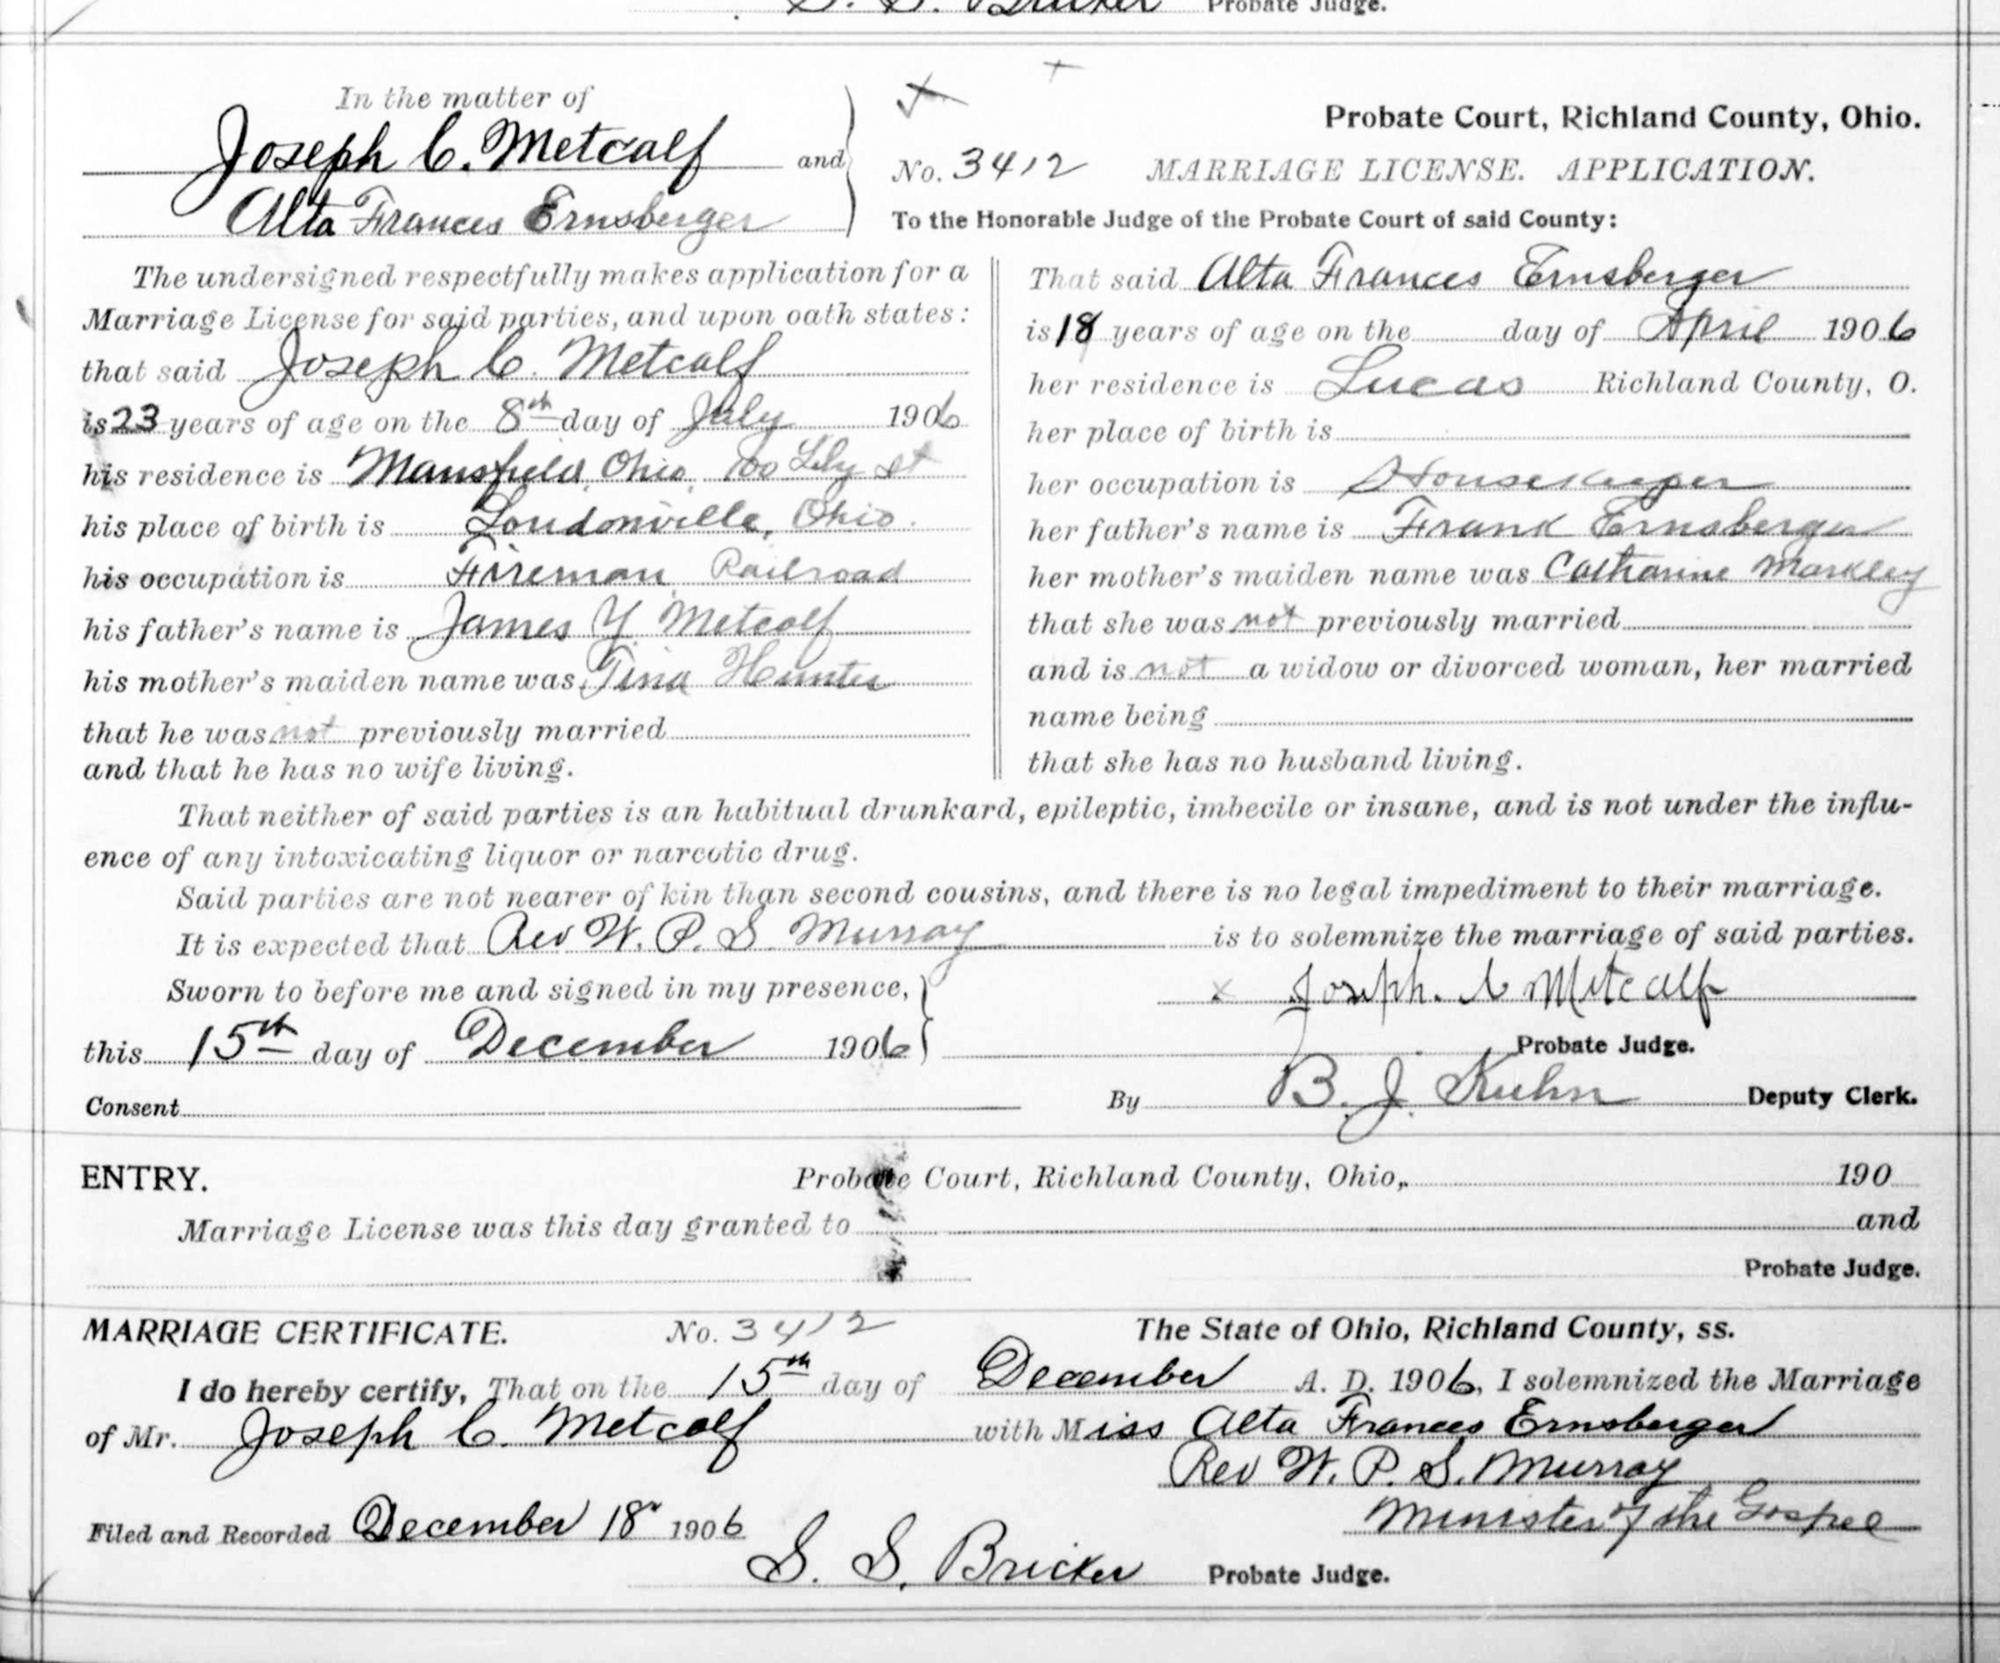 S. S. Bricker Probate Judge.
In the matter of
Joseph C. Metcalf and
Alta Frances Ernsberger
Probate Court, Richland County, Ohio.
No. 3412 MARRIAGE LICENSE. APPLICATION.
To the Honorable Judge of the Probate Court of said County:
The undersigned respectfully makes application for a
Marriage License for said parties, and upon oath states:
that said Joseph C. Metcalf
is 23 years of age on the 8th day of July 1906
his residence is Mansfield, Ohio, Lily St
his place of birth is Loudonville, Ohio.
his occupation is Fireman Railroad
his father's name is James Y. Metcalf
his mother's maiden name was Tina Hunter
that he was not previously married
and that he has no wife living.
That said Alta Frances Ernsberger
is 18 years of age on the day of April 1906
her residence is Lucas Richland County, O.
her place of birth is
her occupation is Housekeeper
her father's name is Frank Ernsberger
her mother's maiden name was Catharine Markley
that she was not previously married
and is not a widow or divorced woman, her married
name being
that she has no husband living.
That neither of said parties is an habitual drunkard, epileptic, imbecile or insane, and is not under the influ-
ence of any intoxicating liquor or narcotic drug.
Said parties are not nearer of kin than second cousins, and there is no legal impediment to their marriage.
It is expected that Rev W. P. S. Murray is to solemnize the marriage of said parties.
Sworn to before me and signed in my presence, x Joseph. C Metcalf
this 15th day of December 1906 Probate Judge.
Consent By B. J. Kuhn Deputy Clerk.
ENTRY. Probate Court, Richland County, Ohio, 190
Marriage License was this day granted to and
Probate Judge.
MARRIAGE CERTIFICATE. No. 3412 The State of Ohio, Richland County, ss.
I do hereby certify, That on the 15th day of December A. D. 1906, I solemnized the Marriage
of Mr. Joseph C. Metcalf with Miss Alta Frances Ernsberger
Rev W. P. S. Murray
Filed and Recorded December 18" 1906 Minister of the Gospel
S. S. Bricker Probate Judge.